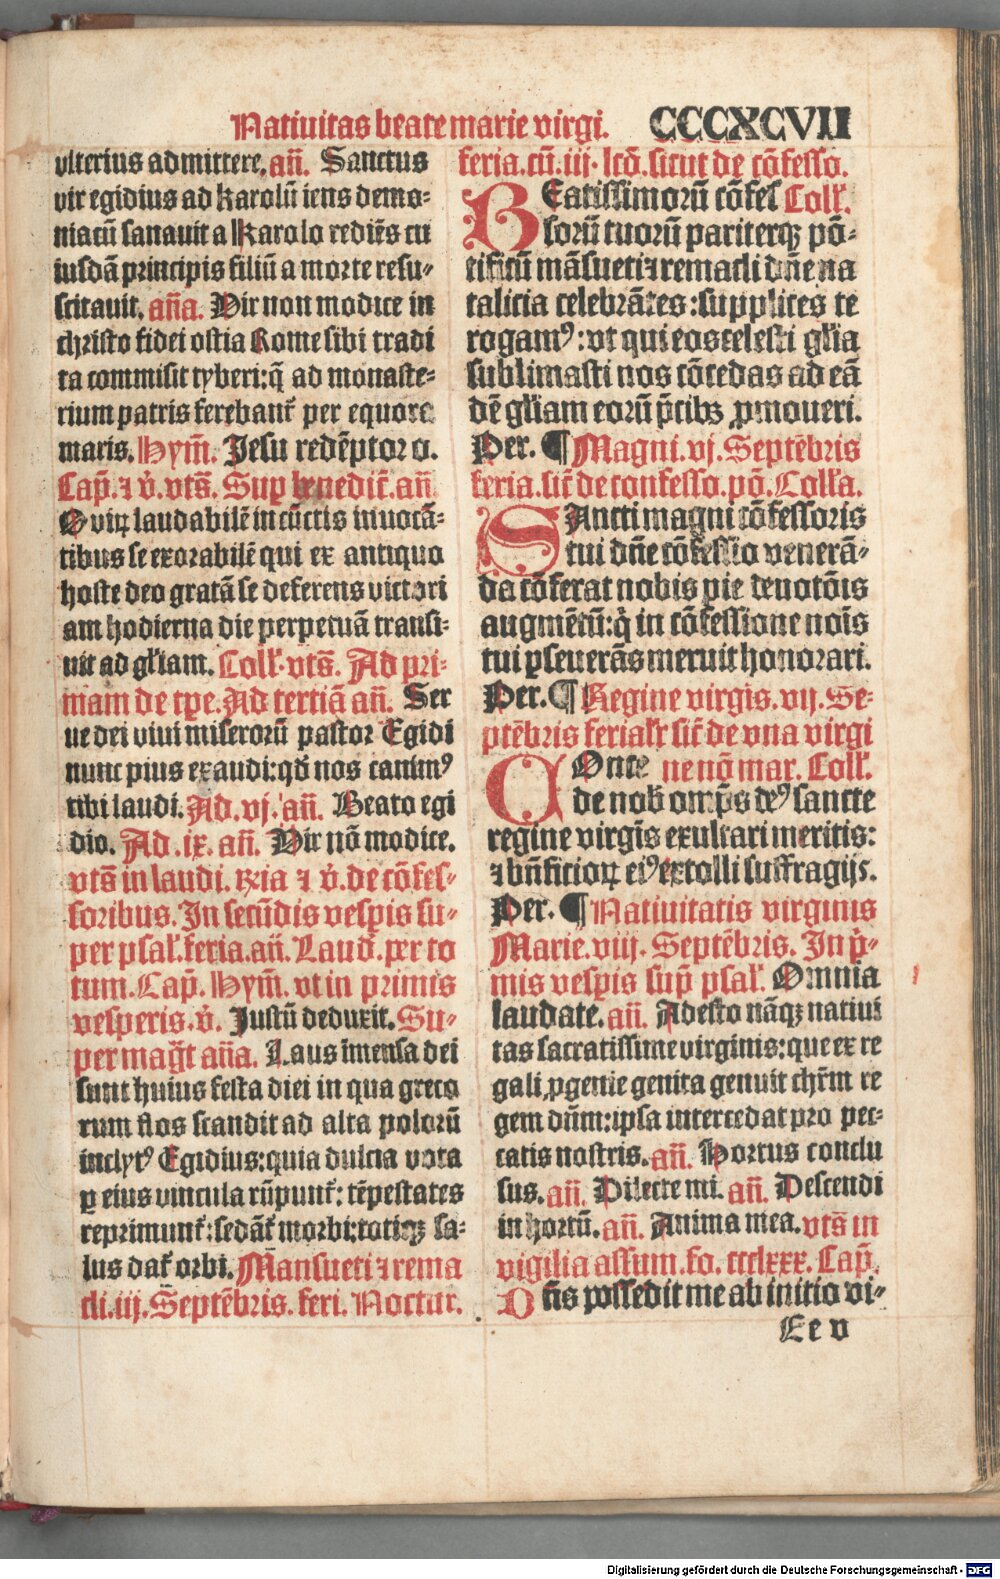 Natiuitas beate marie virgi. CCCXCVII
vlterius admittere. an̄. Sanctus
vir egidius ad karolū iens demo-
niacū sanauit a Karolo rediēs cu
iusdā principis filiū a morte resu-
scitauit. an̄a. Vir non modice in
christo fidei ostia Rome sibi tradi
ta commisit tyberi: q̄ ad monaste-
rium patris ferebant᷑ per equora
maris. Hym̄. Jesu redēptor o.
Cap̄. ⁊ v̇. vts̄. Sup benedict̄. an̄
O viꝝ laudabilē in cūctis inuocā-
tibus se exorabilē qui ex antiquo
hoste deo gratā se deferens victori
am hodierna die perpetuā transi-
uit ad gl̄iam. Coll̄. vts̄. Ad pri-
mam de tp̄e. Ad tertiā an̄. Ser
ue dei viui miserorū pastor Egidi
nunc pius exaudi: qd̄ nos canimꝰ
tibi laudi. Ad. vj. an̄. Beato egi
dio. Ad .ix. an̄. Vir nō modice.
vts̄ in laudi. ꝶia ⁊ v̇. de cōfes-
soribus. In secūdis vesp̄is su-
per psal̄. feria. an̄. Laud̄. per to
tum. Cap̄. Hym̄. vt in primis
vesperis. v̇. Justū deduxit. Su-
per maḡt an̄a. Laus īmensa dei
sunt huius festa diei in qua greco
rum flos scandit ad alta polorū
inclytꝰ Egidius: quia dulcia vota
ꝑ eius vincula rūpunt᷑: tēpestates
reprimunt᷑: sedāt᷑ morbi: totiqꝫ sa-
lus dat᷑ orbi. Mansueti ⁊ rema
cli. iij. Septēbris. feri. Noctur.
feria. cū. iij. lcō. sicut de cōfesso.
BEatissimorū cōfes Coll̄.
sorū tuorū pariterqꝫ pō-
tificū māsueti ⁊ remacli dn̄e na
talicia celebrātes: supplices te
rogamꝰ: vt qui eos celesti gl̄ia
sublimasti nos cōcedas ad eā
dē gl̄iam eorū p̄cibꝫ ꝓmoueri.
Per. ¶ Magni. vj. Septēbris
feria. sic̄ de confesso. pō. Coll̄a.
SAncti magni cōfessoris
tui dn̄e cōfessio venerā-
da cōferat nobis pie deuotōis
augmētū: q̇ in cōfessione nois̄
tui ꝑseuerās meruit honorari.
Per. ¶ Regine virgis. vij. Se-
ptēbris ferialr̄ sic̄ de vna virgi
COnce ne nō mar. Coll̄.
de nob̄ omp̄s deꝰ sancte
regine virgīs exultari meritis:
⁊ bn̄ficioꝝ eiꝰ extolli suffragijs.
Per. ¶ Natiuitatis virginis
Marie. viij. Septēbris. In ṗ-
mis vesp̄is sup̄ psal̄. Omnia
laudate. an̄. Adesto nāqꝫ natiui
tas sacratissime virginis: que ex re
gali ꝓgenie genita genuit chr̄m re
gem dn̄m: ipsa intercedat pro pec-
catis nostris. an̄. Hortus conclu
sus. an̄. Dilecte mi. an̄. Descendi
in hortū. an̄. Anima mea. vts̄ in
vigilia assum. fo. ccclxxx. Cap̄.
Dn̄s possedit me ab initio vi-
Ee v
Digitalisierung gefördert durch die Deutsche Forschungsgemeinschaft - DFG